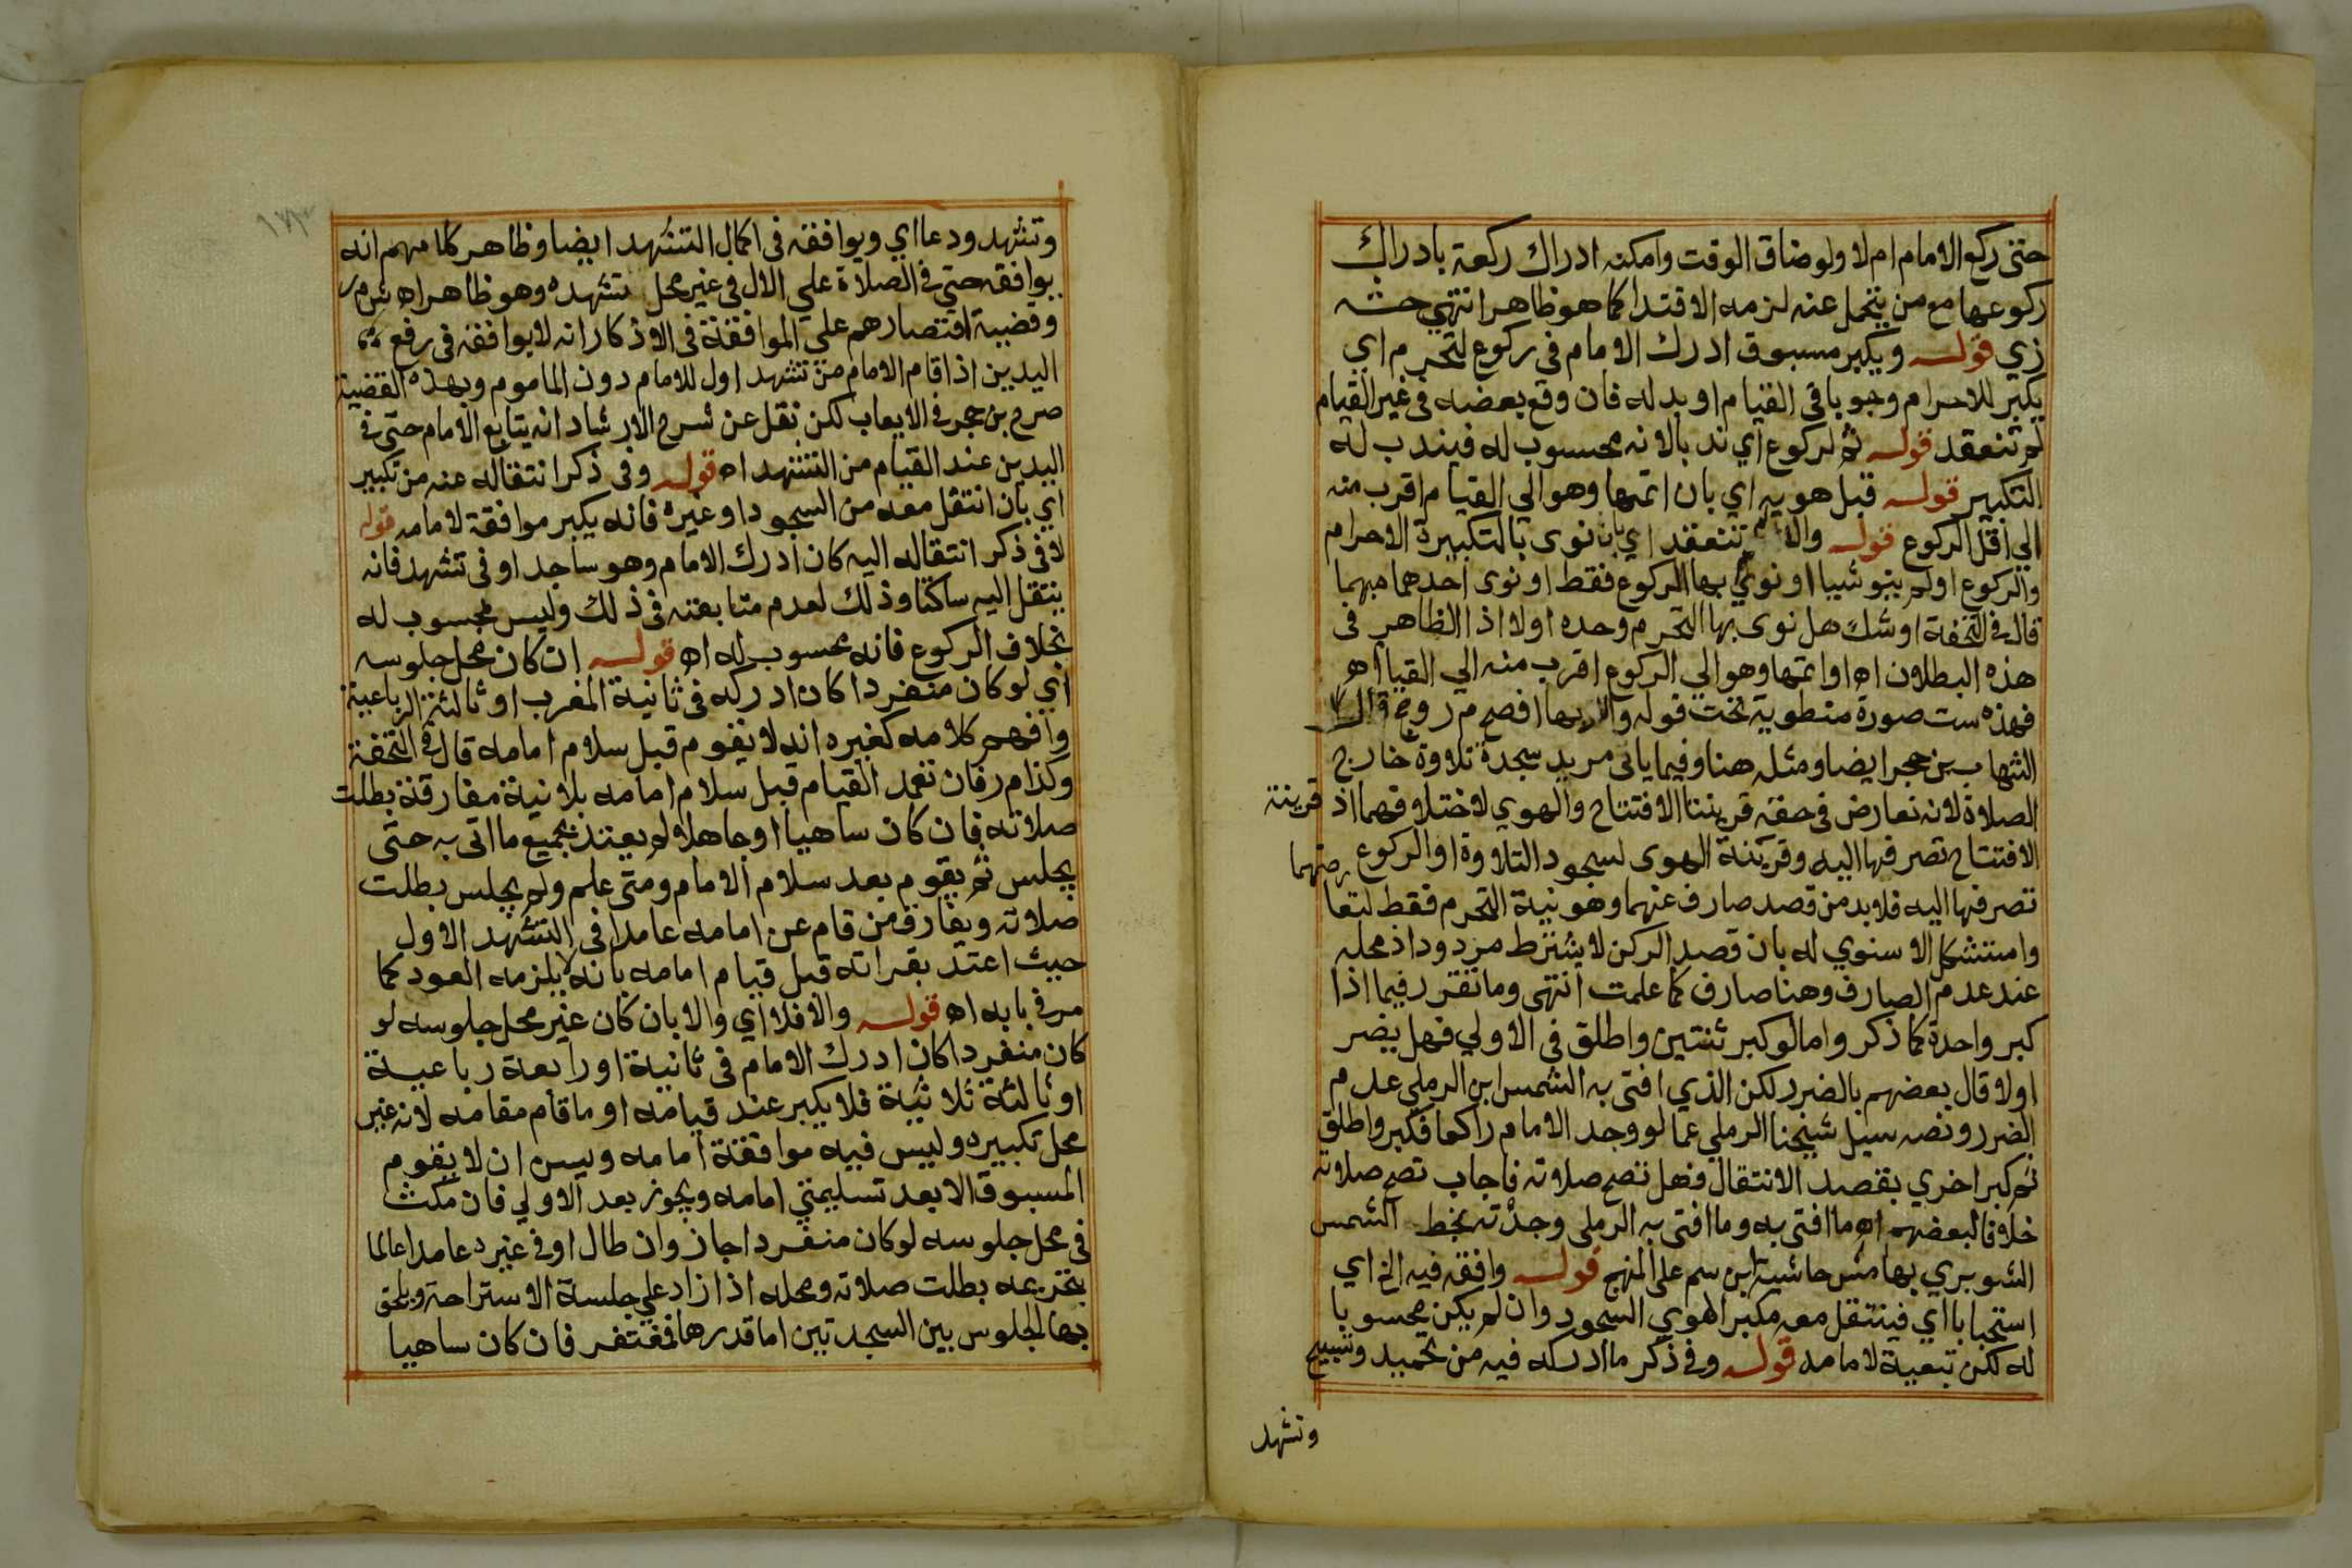 حتى ركع الامام ام لا ولو ضاق الوقت وامكنه ادراك ركعة بادراك
ركوعها مع من يتحمل عنه لزمه الاقتدا كما هو ظاهر انتهى حشـ
زي قوله ويكبر مسبوق ادرك الامام في ركوع لتحرم اي
يكبر للاحرام وجوبا في القيام او بدله فان وقع بعضه في غير القيام
لم تنعقد قوله ثم لركوع اي ندبا لانه محسوب له فيندب له
التكبير قوله قبل هويه اي بان اتمها وهو الي القيام اقرب منه
الي اقل الركوع قوله والا لم تنعقد اي بان نوى بالتكبيرة الاحرام
والركوع او لم ينو شيا او نوي بها الركوع فقط او نوى احدهما مبهما
قال في التحفة او شك هل نوى بها التحرم وحده او لا اذ الظاهر في
هذه البطلان اه او اتمها وهو الي الركوع اقرب منه الي القيا اه
فهذه ست صورة منطوية تحت قوله والا
الشهاب بن حجر ايضا ومثله هنا وفيما ياتي مريد سجدة تلاوة خارج
الصلاة لانه تعارض في حقه قرينتا الافتتاح والهوي لاختلافهما اذ قرينة
الافتتاح تصرفها اليه وقرينة الهوى لسجود التلاوة او الركوع
تصرفها اليه فلا بد من قصد صارف عنهما وهو نية التحرم فقط لتعا رضهما
واستشكل الاسنوي له بان قصد الركن لا يشترط مردود اذ محله
عند عدم الصارف وهنا صارف كما علمت انتهى وما تقرر فيما اذا
كبر واحدة كما ذكر واما لو كبر ثنتين واطلق في الاولي فهل يضر
او لا قال بعضهم بالضرر لكن الذي افتى به الشمس ابن الرملي عدم
الضرر ونصه سيل شيخنا الرملي عما لو وجد الامام راكعا فكبر واطلق
ثم كبر اخري بقصد الانتقال فهل تصح صلاته فاجاب تصح صلاته
خلافا لبعضهم اه ما افتى به وما افتى به الرملي وجدته بخط الشمس
الشوبري بهامش حاشية ابن سم على المنهج قوله وافقه فيه الخ اي
استحبابا اي فينتقل معه مكبرا لهوي السجود وان لم يكن محسوبا
له لكن تبعية لامامه قوله وفي ذكر ما ادركه فيه من تحميد وتسبيح
وتشهد
وتشهد ودعا اي ويوافقه في اكمال التشهد ايضا وظاهر كلامهم انه
يوافقه حتى في الصلاة علي الال في غير محل تشهده وهو ظاهر اه ش م ر
وقضية اقتصارهم علي الموافقة في الاذكار انه لا يوافقه في رفع
اليدين اذا قام الامام من تشهد اول للامام دون الماموم وبهذه القضية
صرح بن حجر في الايعاب لكن نقل عن شرح الارشاد انه يتابع الامام حتى في
اليدين عند القيام من التشهد اه قوله وفي ذكر انتقاله عنه من تكبير
اي بان انتقل معه من السجود او غيره فانه يكبر موافقة لامامه قوله
لا في ذكر انتقاله اليه كان ادرك الامام وهو ساجد او في تشهد فانه
ينتقل اليه ساكتا وذلك لعدم متابعته في ذلك وليس محسوب له
بخلاف الركوع فانه محسوب له اه قوله ان كان محل جلوسه
اي لو كان منفردا كان ادركه في ثانية المغرب او ثالثة الرباعية
وافهم كلامه كغيره انه لا يقوم قبل سلام امامه قال في التحفة
وكذا م ر فان تعمد القيام قبل سلام امامه بلا نية مفارقة بطلت
صلاته فان كان ساهيا او جاهلا لم يعتد بجميع ما اتى به حتى
يجلس ثم يقوم بعد سلام الامام ومتى علم ولم يجلس بطلت
صلاته ويفارق من قام عن امامه عامدا في التشهد الاول
حيث اعتد بقراته قبل قيام امامه بانه لا يلزمه العود كما
مر في بابه اه قوله والا فلا اي والا بان كان غير محل جلوسه لو
كان منفردا كان ادرك الامام في ثانية او رابعة رباعية
او ثالثة ثلاثية فلا يكبر عند قيامه او ما قام مقامه لانه غير
محل تكبيره وليس فيه موافقة امامه ويسن ان لا يقوم
المسبوق الا بعد تسليمتي امامه ويجوز بعد الاولي فان مكث
في محل جلوسه لو كان منفردا جاز وان طال او في غيره عامدا عالما
بتحريمه بطلت صلاته ومحله اذا زاد علي جلسة الاستراحة ويلحق
بها الجلوس بين السجدتين اما قدرها فمغتفر فان كان ساهيا